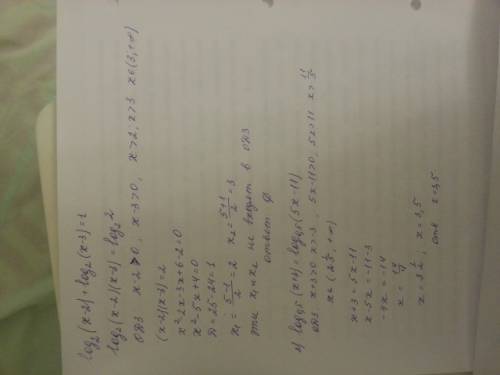 log₂(x-2)+log₂(x-3)=1
log₂(x-2)(x-3)=log₂2
ОДЗ x-2>0, x-3>0, x>2, x>3 x∈(3,+∞)
(x-2)(x-3)=2
x²-2x-3x+6-2=0
x²-5x+4=0
D=25-24=1
x₁=(5-1)/2=2 x₂=(5+1)/2=3
эти x₁ и x₂ не входят в ОДЗ
ответ ∅
2) log₀,₅(x+3)=log₀,₅(5x-11)
ОДЗ x+3>0 x>-3, 5x-11>0, 5x>11 x>11/5
x∈(2 1/5, +∞)
x+3=5x-11
x-5x=-11-3
-4x=-14
x=14/4
x=3 1/2, x=3,5
отв x=3,5